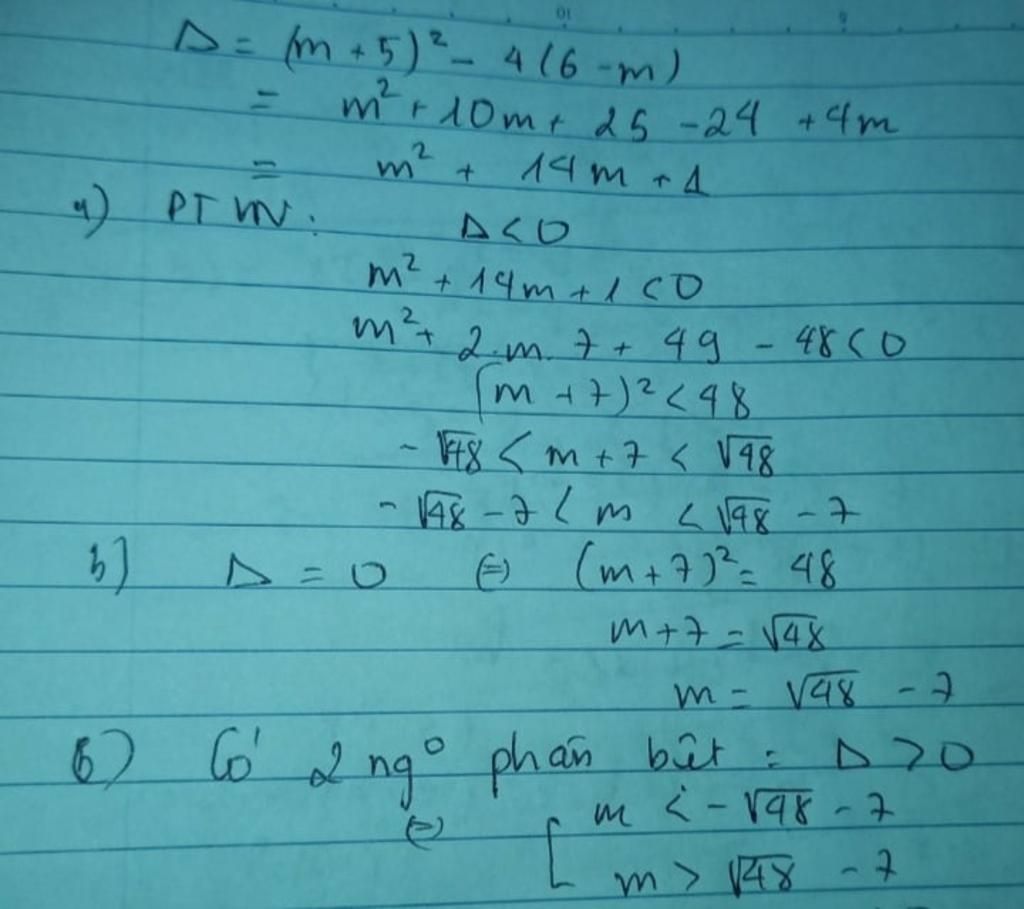 Δ = (m + 5)² - 4(6 - m)
= m² + 10m + 25 - 24 + 4m
= m² + 14m + 1
a) PT VN : Δ < 0
m² + 14m + 1 < 0
m² + 2.m.7 + 49 - 48 < 0
(m + 7)² < 48
-√48 < m + 7 < √48
-√48 - 7 < m < √48 - 7
b) Δ = 0 (=) (m + 7)² = 48
m + 7 = √48
m = √48 - 7
6) Có 2 ngº phân biệt : Δ > 0
(=) [ m < -√48 - 7
m > √48 - 7